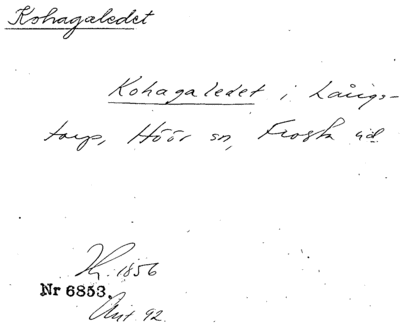 Kohagaledet
Kohagaledet i Långs-
torp, Höör sn, Frosta hd
1856
Nr 6853.
Ant. 92.